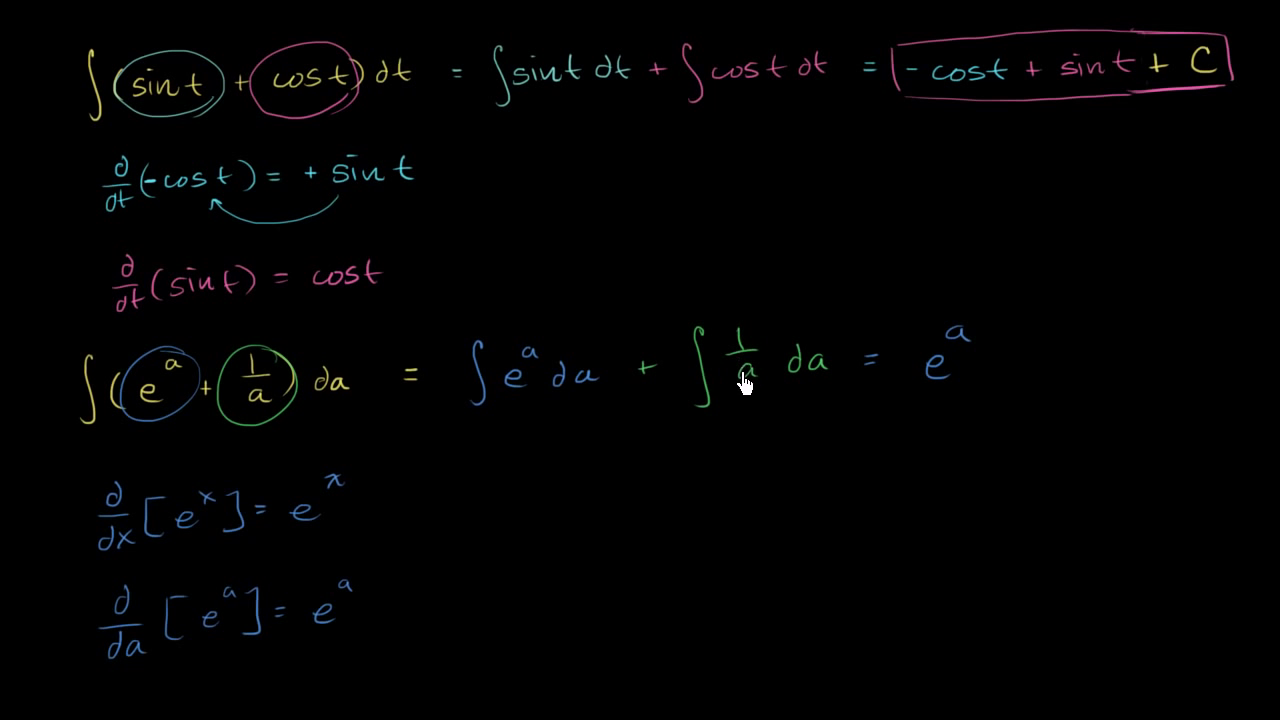 ∫(sin t + cos t) dt = ∫sin t dt + ∫cos t dt = - cos t + sin t + C
d/dt(-cos t) = + sin t
d/dt(sin t) = cos t
∫(e^a + 1/a) da = ∫e^a da + ∫1/a da = e^a
d/dx[e^x] = e^x
d/da[e^a] = e^a